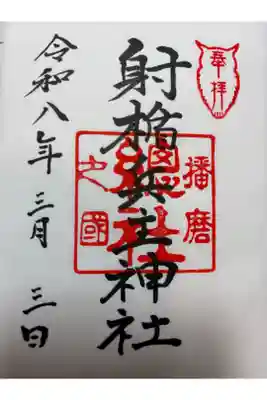 奉拝
播磨
之國
總社
射楯兵主神社
令和八年三月三日